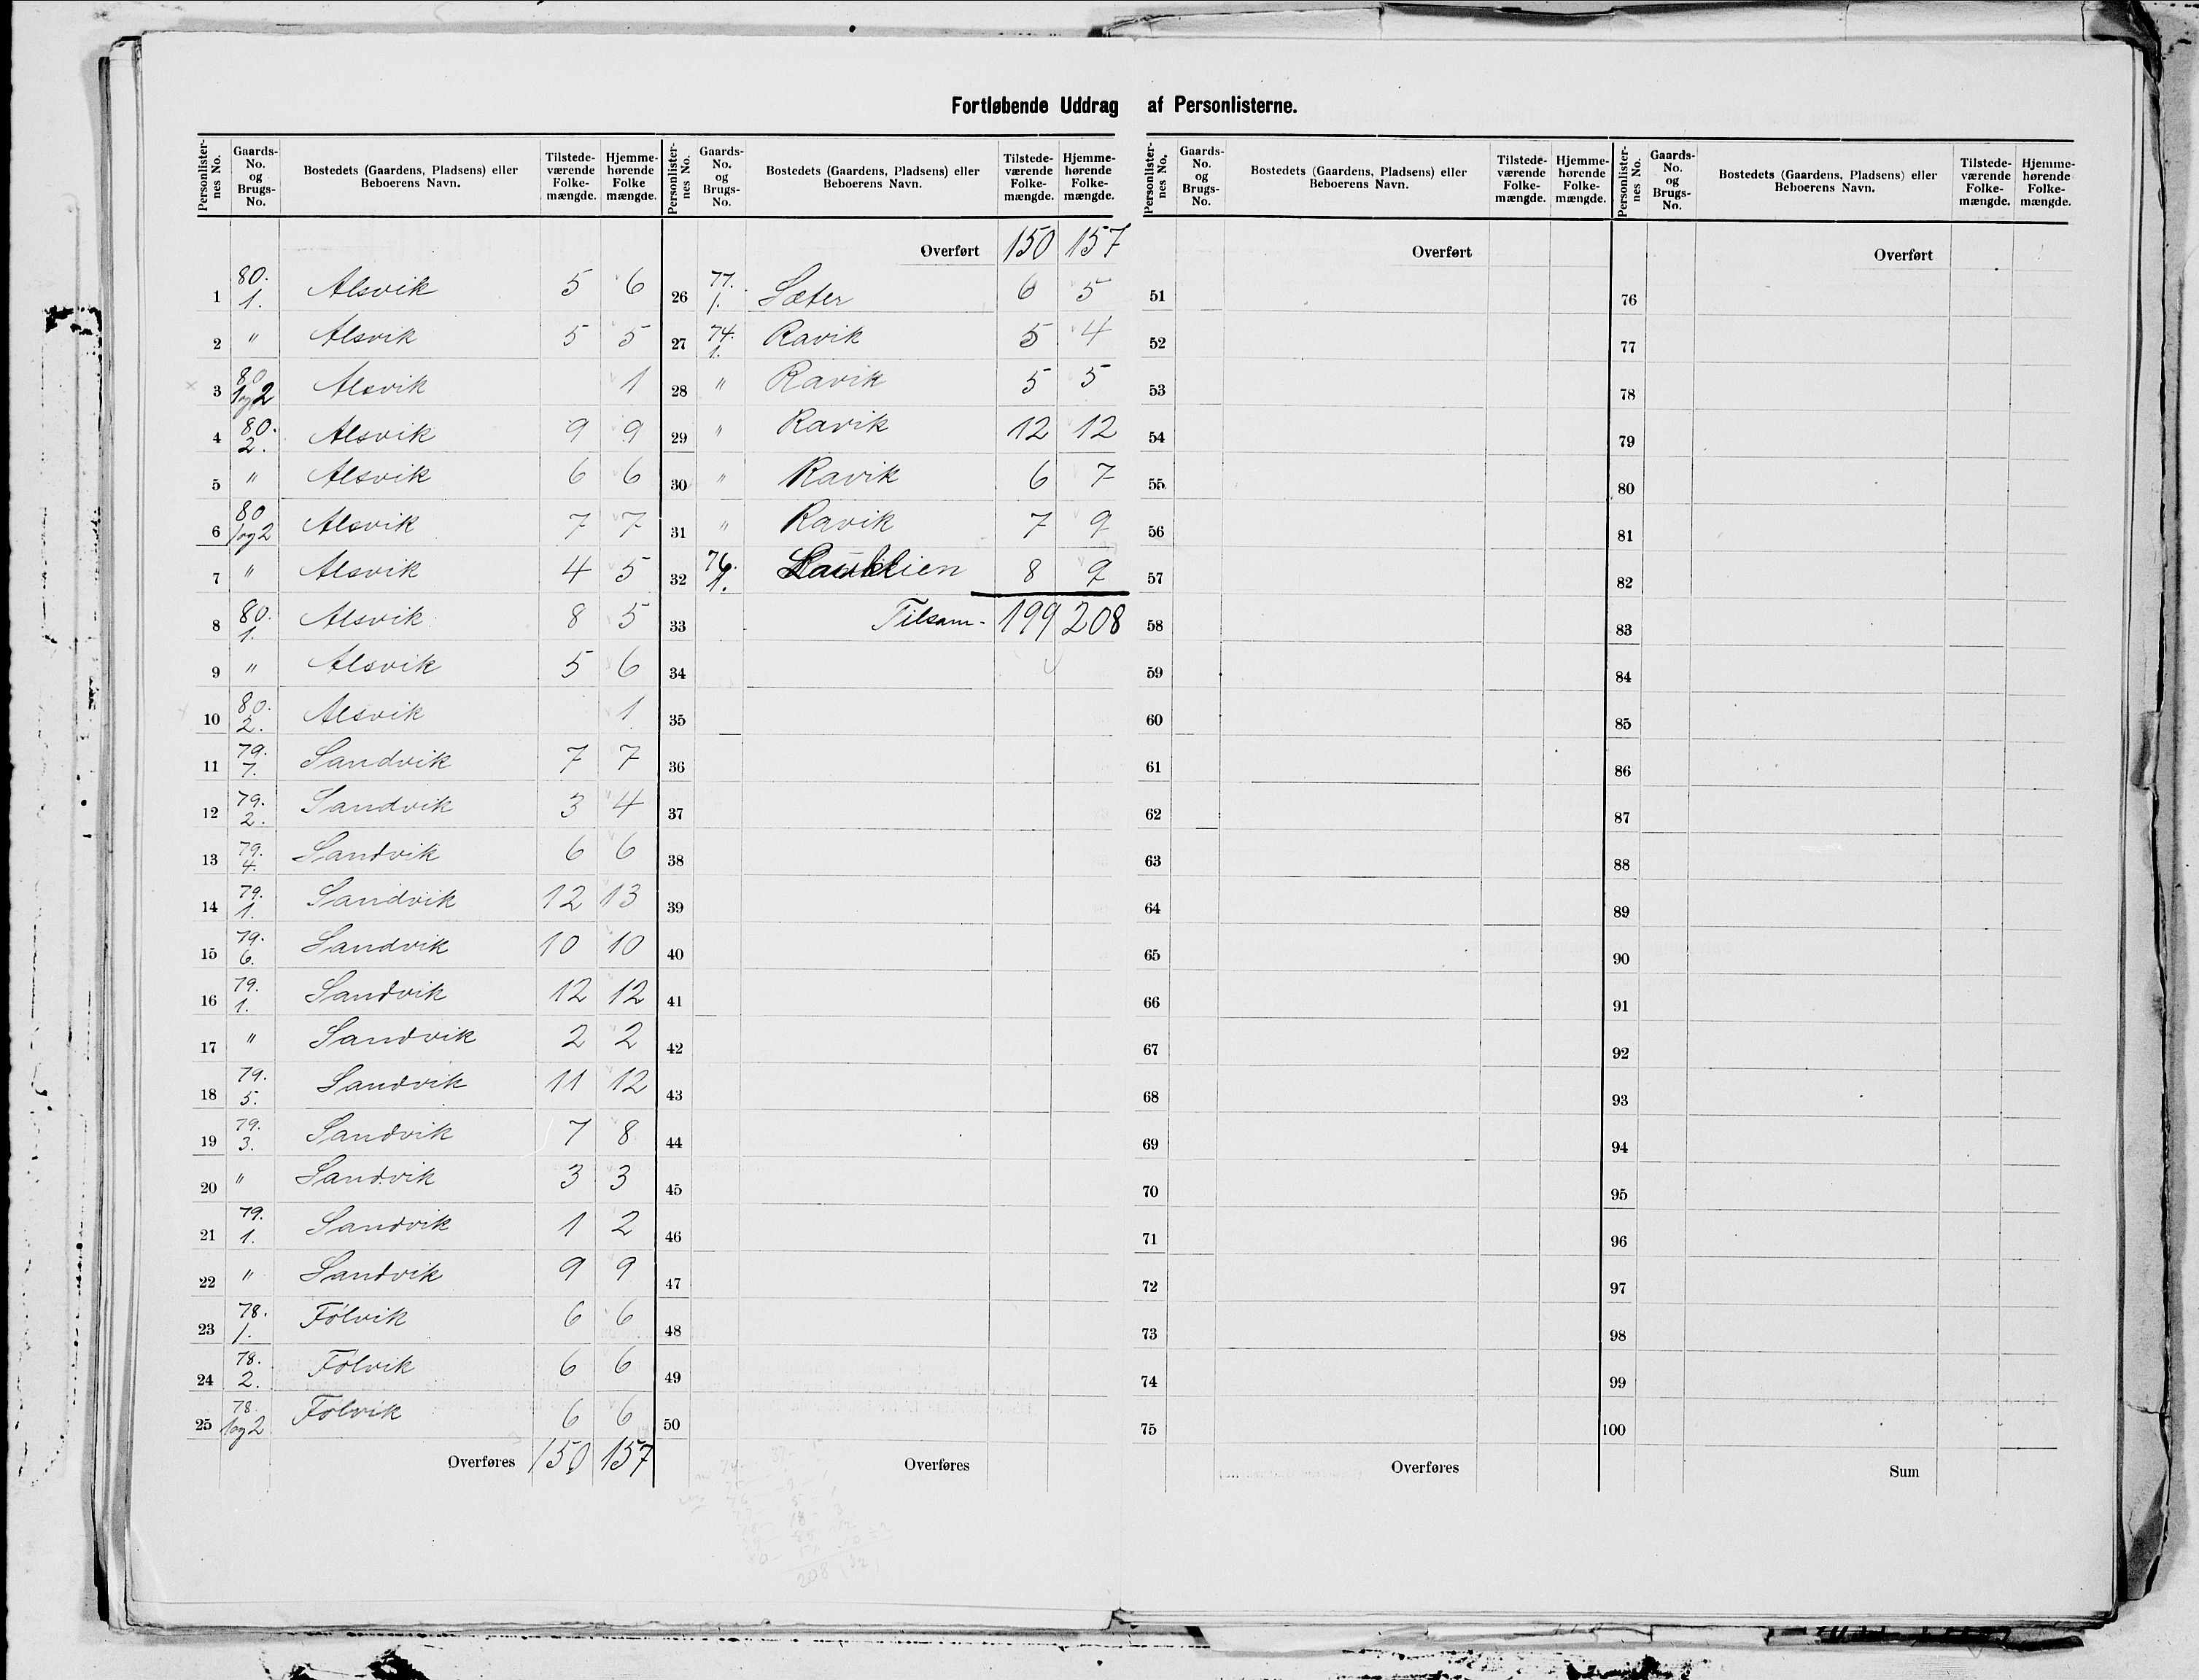 Fortløbende Uddrag af Personlisterne.
Personlisternes No. Gaards-No. og Brugs-No. Bostedets (Gaardens, Pladsens) eller Beboerens Navn. Tilstedeværende Folkemængde. Hjemmehørende Folke mængde.
1 80. 1. Alsvik 5 6
2 " Alsvik 5 5
3 80 1og2 Alsvik 1
4 80. 2. Alsvik 9 9
5 " Alsvik 6 6
6 80 1og2 Alsvik 7 7
7 " Alsvik 4 5
8 80. 1. Alsvik 8 5
9 " Alsvik 5 6
10 80. 2. Alsvik 1
11 79. 7. Sandvik 7 7
12 79. 2. Sandvik 3 4
13 79. 4. Sandvik 6 6
14 79. 1. Sandvik 12 13
15 79. 6. Sandvik 10 10
16 79. 1. Sandvik 12 12
17 " Sandvik 2 2
18 79. 5. Sandvik 11 12
19 79. 3. Sandvik 7 8
20 " Sandvik 3 3
21 79. 1. Sandvik 1 2
22 " Sandvik 9 9
23 78. 1. Fölvik 6 6
24 78. 2. Fölvik 6 6
25 78. 1og2 Fölvik 6 6
Overføres 150 157
Personlisternes No. Gaards-No. og Brugs-No. Bostedets (Gaardens, Pladsens) eller Beboerens Navn. Tilstedeværende Folkemængde. Hjemmehørende Folkemængde.
Overført 150 157
26 77. 1. Sæter 6 5
27 74. 1. Ravik 5 4
28 " Ravik 5 5
29 " Ravik 12 12
30 " Ravik 6 7
31 " Ravik 7 9
32 76. 1. 8 9
33 Tilsam- 199 208
34
35
36
37
38
39
40
41
42
43
44
45
46
47
48
49
50
Overføres
Personlisternes No. Gaards-No. og Brugs-No. Bostedets (Gaardens, Pladsens) eller Beboerens Navn. Tilstedeværende Folkemængde. Hjemmehørende Folkemængde.
Overført
51
52
53
54
55
56
57
58
59
60
61
62
63
64
65
66
67
68
69
70
71
72
73
74
75
Overføres
Personlisternes No. Gaards-No. og Brugs-No. Bostedets (Gaardens, Pladsens) eller Beboerens Navn. Tilstedeværende Folkemængde. Hjemmehørende Folkemængde.
Overført
76
77
78
79
80
81
82
83
84
85
86
87
88
89
90
91
92
93
94
95
96
97
98
99
100
Sum